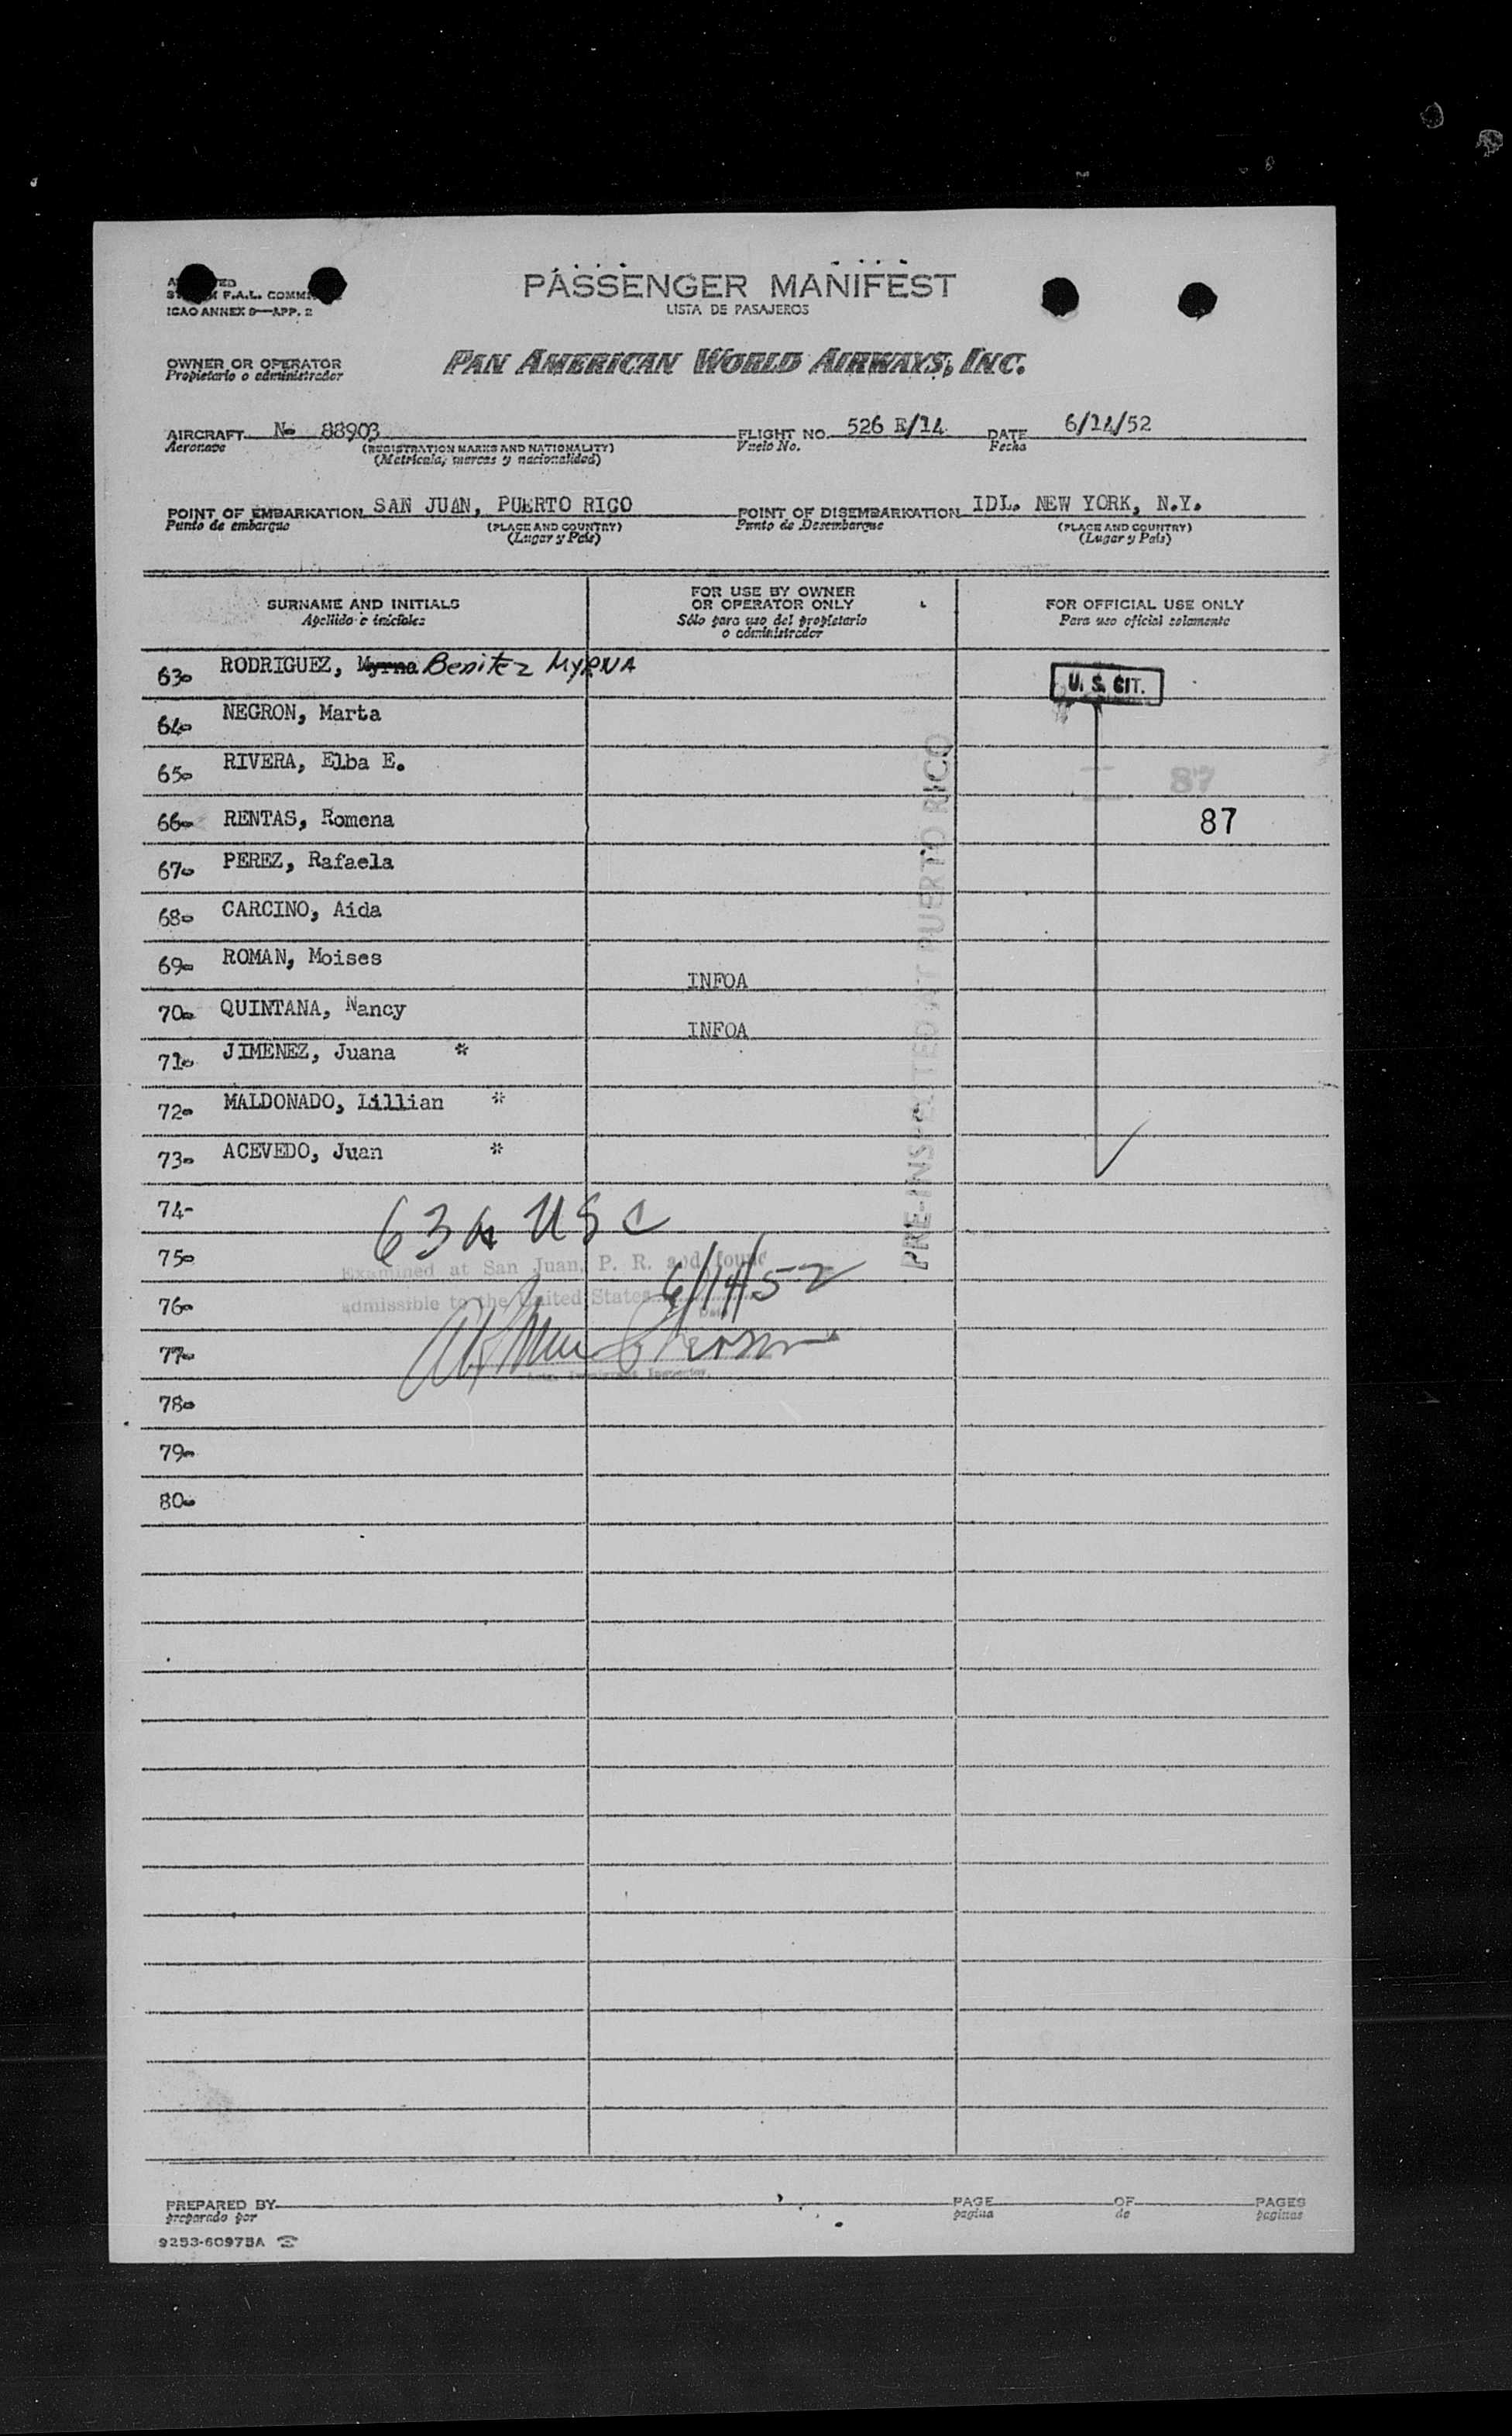 PASSENGER MANIFEST
LISTA DE PASAJEROS
F.A.L.
ICAO ANNEX 9—APP. 2
OWNER OR OPERATOR
Propietario o administrador
PAN AMERICAN WORLD AIRWAYS, INC.
AIRCRAFT N- 88903 FLIGHT NO. 526 E/14 DATE 6/14/52
Aeronave (REGISTRATION MARKS AND NATIONALITY) Vuelo No. Fecha
(Matrícula, marcas y nacionalidad)
POINT OF EMBARKATION SAN JUAN, PUERTO RICO POINT OF DISEMBARKATION IDL. NEW YORK, N.Y.
Punto de embarque (PLACE AND COUNTRY) Punto de Desembarque (PLACE AND COUNTRY)
(Lugar y País) (Lugar y País)
SURNAME AND INITIALS
Apellido e iniciales
FOR USE BY OWNER
OR OPERATOR ONLY
Sólo para uso del propietario
o administrador
FOR OFFICIAL USE ONLY
Para uso oficial solamente
63- RODRIGUEZ, Myrna Benitez MYRNA U. S. CIT.
64- NEGRON, Marta
65- RIVERA, Elba E. 87
66- RENTAS, Romona 87
67- PEREZ, Rafaela
68- CARCINO, Aida
69- ROMAN, Moises INFOA
70- QUINTANA, Nancy INFOA
71- JIMENEZ, Juana *
72- MALDONADO, Lillian *
73- ACEVEDO, Juan *
PRE-INSPECTED AT PUERTO RICO
74-
63 USC
75-
Examined at San Juan, P. R. and found
76-
admissible to the United States 6/14/52
Date
77-
Immigrant Inspector.
78-
79-
80-
PREPARED BY PAGE OF PAGES
preparado por pagina de paginas
9253-60975A